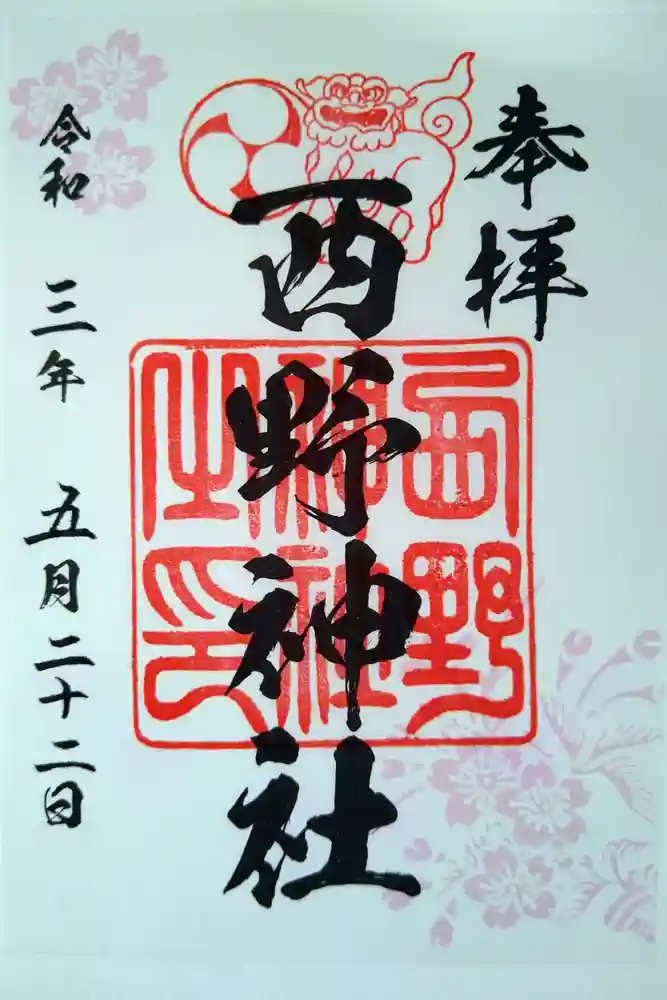 奉拝
西野神社
西野
神社
之印
令和三年五月二十二日